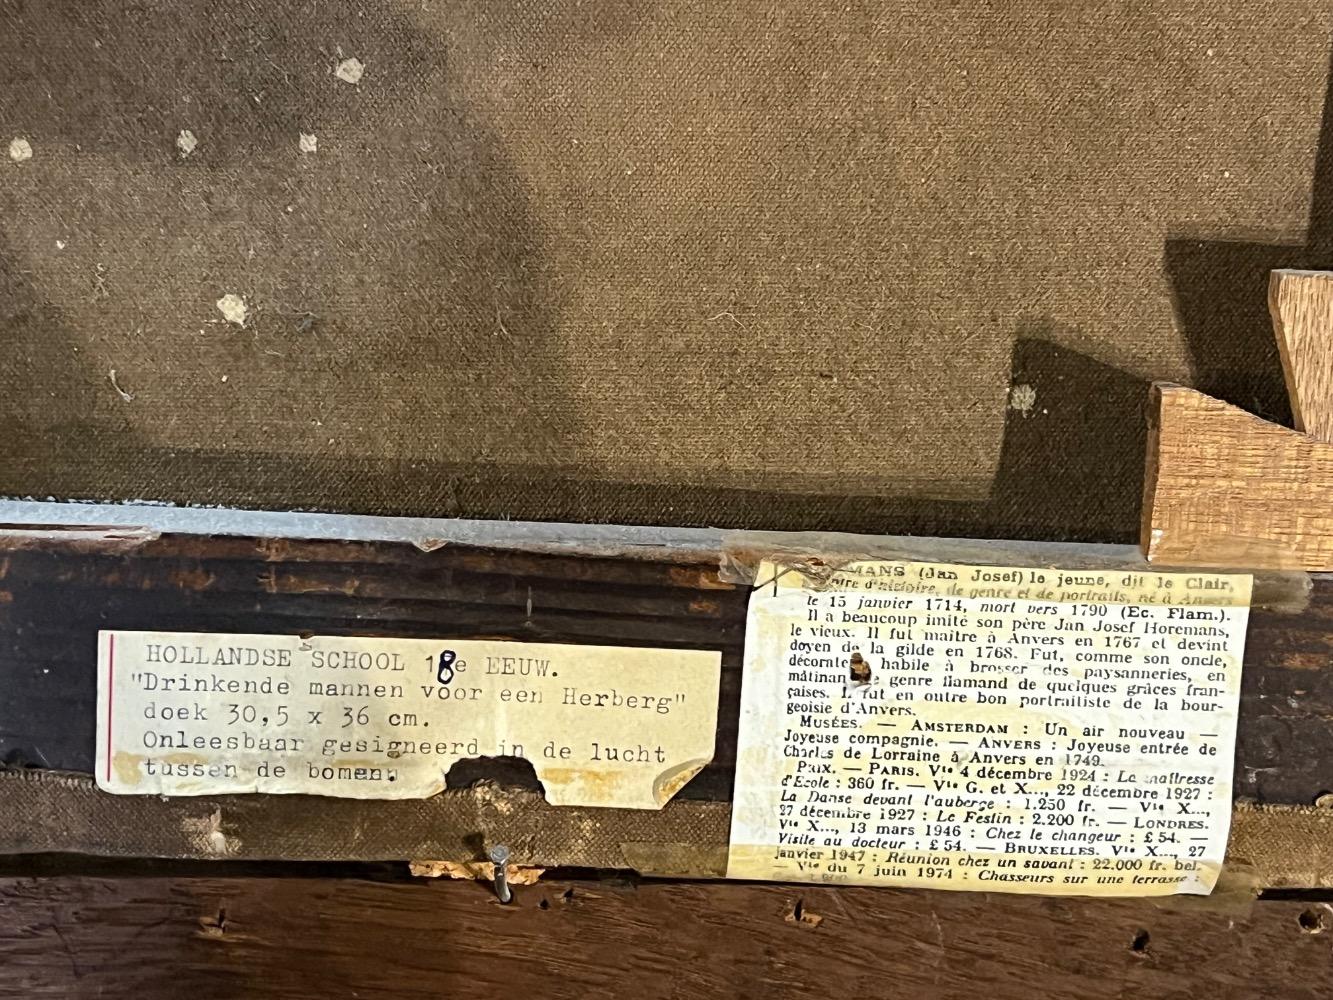 HOLLANDSE SCHOOL 18e EEUW.
"Drinkende mannen voor een Herberg"
doek 30,5 x 36 cm.
Onleesbaar gesigneerd in de lucht
tussen de bomen.
MANS (Jan Josef) le jeune, dit le Clair,
d'histoire, de genre et de portraits, né à Anvers
le 15 janvier 1714, mort vers 1790 (Ec. Flam.).
Il a beaucoup imité son père Jan Josef Horemans,
le vieux. Il fut maître à Anvers en 1767 et devint
doyen de la gilde en 1768. Fut, comme son oncle,
habile à brosser des paysanneries, en
mâtinan genre flamand de quelques grâces fran-
çaises. Il fut en outre bon portraitiste de la bour-
geoisie d'Anvers.
MUSÉES. — AMSTERDAM : Un air nouveau —
Joyeuse compagnie. — ANVERS : Joyeuse entrée de
Charles de Lorraine à Anvers en 1749.
PRIX. — PARIS. Vte 4 décembre 1924 : La maîtresse
d'Ecole : 360 fr. — Vte G. et X..., 22 décembre 1927 :
La Danse devant l'auberge : 1.250 fr. — Vte X...,
27 décembre 1927 : Le Festin : 2.200 fr. — LONDRES.
Vte X..., 13 mars 1946 : Chez le changeur : £ 54. —
Visite au docteur : £ 54. — BRUXELLES. Vte X..., 27
janvier 1947 : Réunion chez un savant : 22.000 fr. bel.
— Vte du 7 juin 1974 : Chasseurs sur une terrasse :